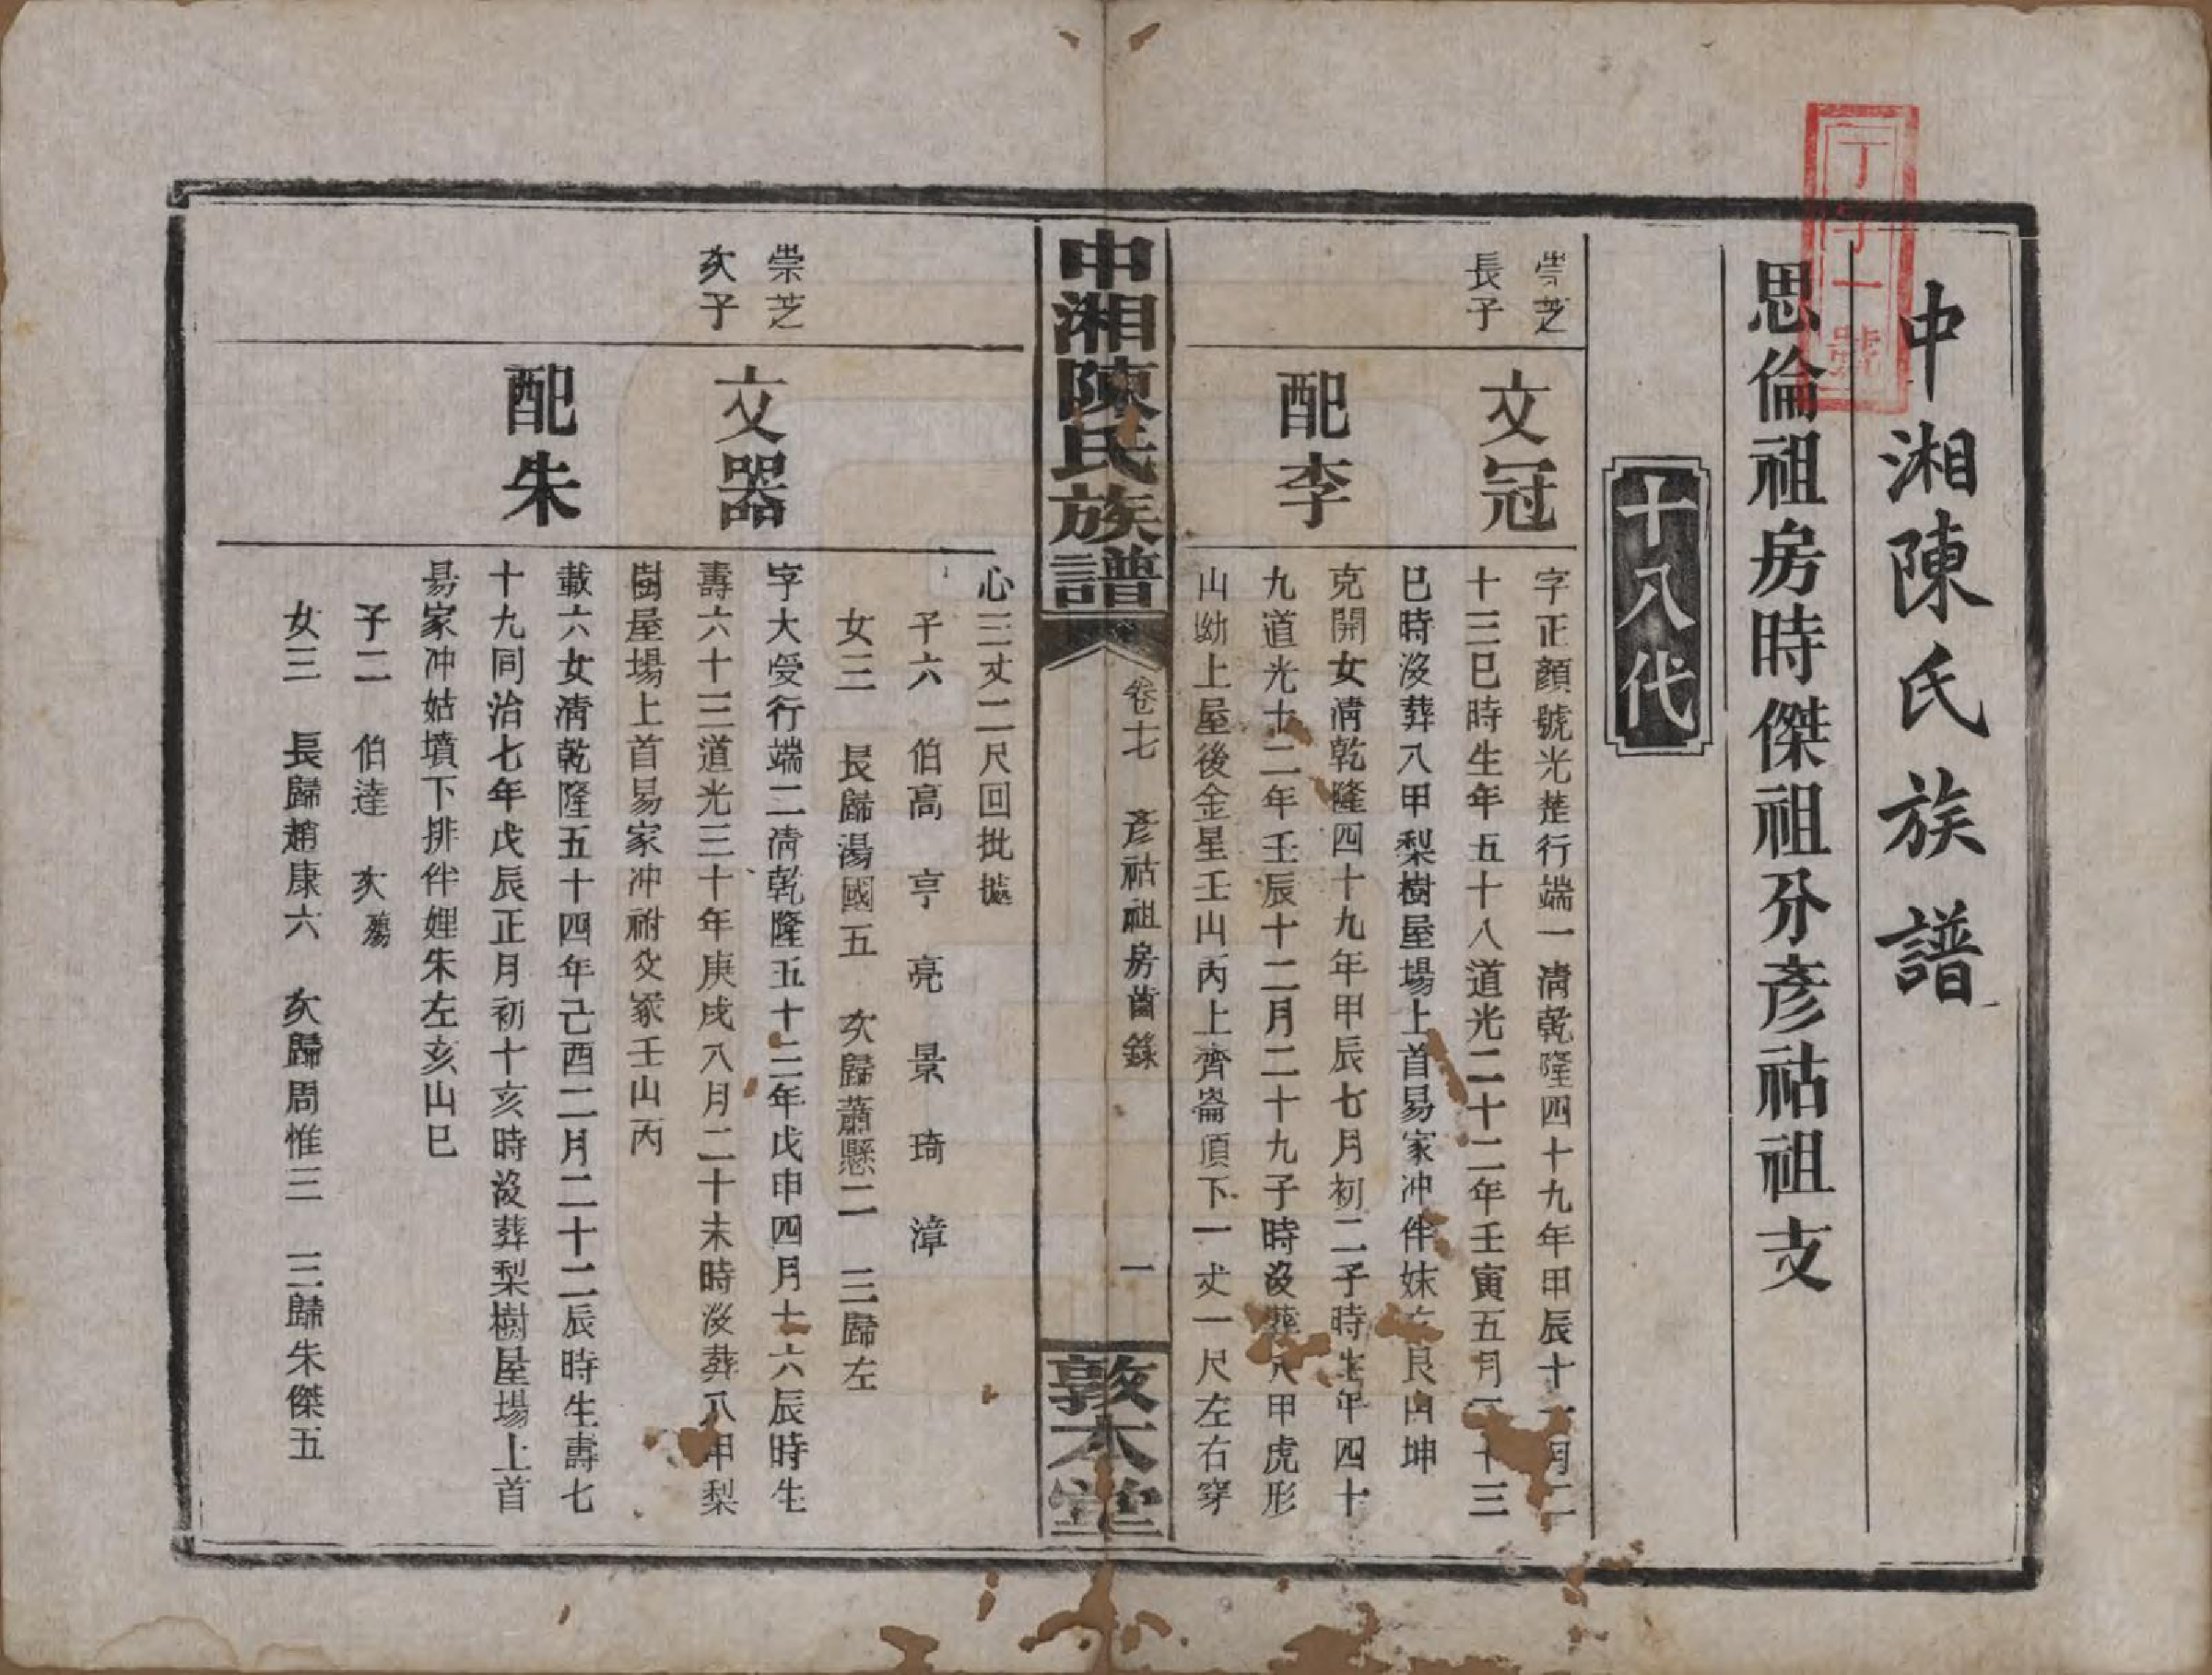 丁字一號
中湘陳氏族譜
思倫祖房時傑祖分彥祜祖支
十八代
崇芝
長子
文冠
字正顏號光楚行端一清乾隆四十九年甲辰十一月二
十三巳時生年五十八道光二十二年壬寅五月二十三
巳時沒葬八甲梨樹屋場上首易家冲伴妹左艮山坤
配李
克開女清乾隆四十九年甲辰七月初二子時生年四十
九道光十二年壬辰十二月二十九子時沒葬八甲虎形
山坳上屋後金星壬山丙上齊崙頂下一丈一尺左右穿
中湘陳氏族譜
卷十七 彥祜祖房齒錄
一
敦本堂
心三丈二尺回批據
子六 伯高 亨 亮 景 琦 漳
女三 長歸湯國五 次歸蕭懸二 三歸左
崇芝
次子
文器
字大受行端二清乾隆五十三年戊申四月十六辰時生
壽六十三道光三十年庚戌八月二十未時沒葬八甲梨
樹屋場上首易家冲祔父冢壬山丙
配朱
載六女清乾隆五十四年己酉二月二十二辰時生壽七
十九同治七年戊辰正月初十亥時沒葬梨樹屋場上首
易家冲姑墳下排伴娌朱左亥山巳
子二 伯達 次殤
女三 長歸趙康六 次歸周惟三 三歸朱傑五